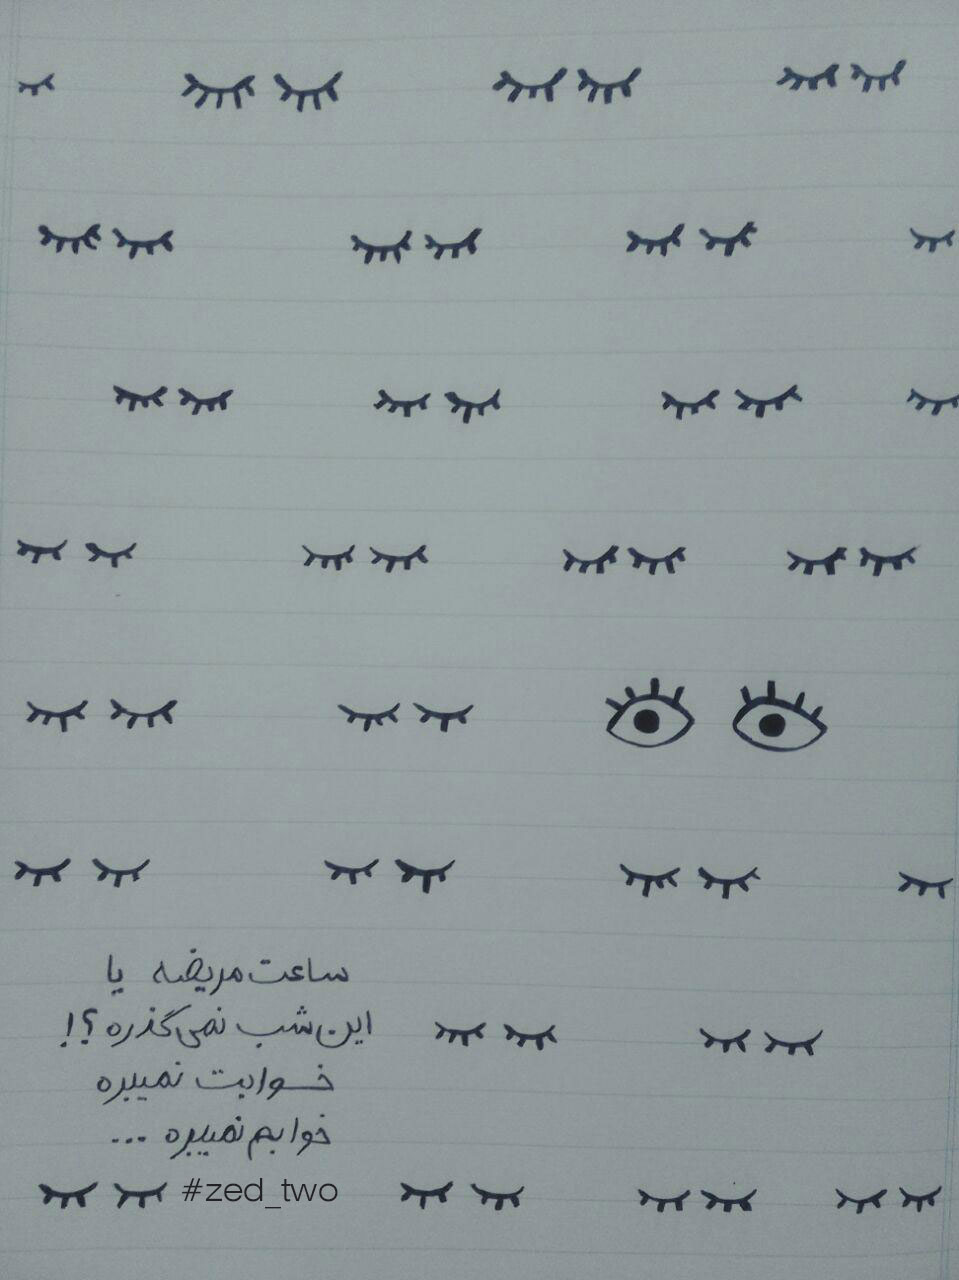 ساعت مریضه یا
این شب نمی‌گذره؟!
خوابت نمیبره
خوابم نمیبره ...
#zed_two